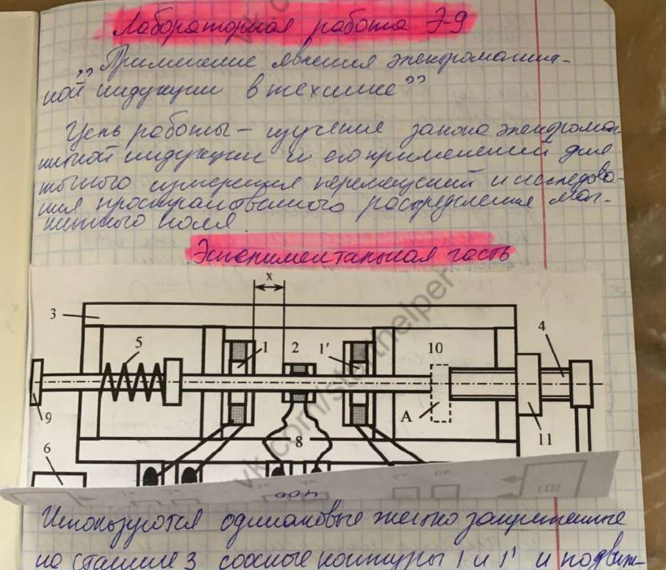 Лабораторная работа Э-9
„Применение явления электромагнит-
ной индукции в технике”
Цель работы – изучение закона электромаг
нитной индукции и его применений для
точного измерения перемещений и исследова-
ния пространственного распределения маг-
нитного поля.
Экспериментальная часть
x
3 5 1 2 1′ 10 4
A
9 8 11
6
vk.com/studhelper
Используются одинаковые жестко закрепленные
на станине 3 соосные контуры 1 и 1' и подвиж-